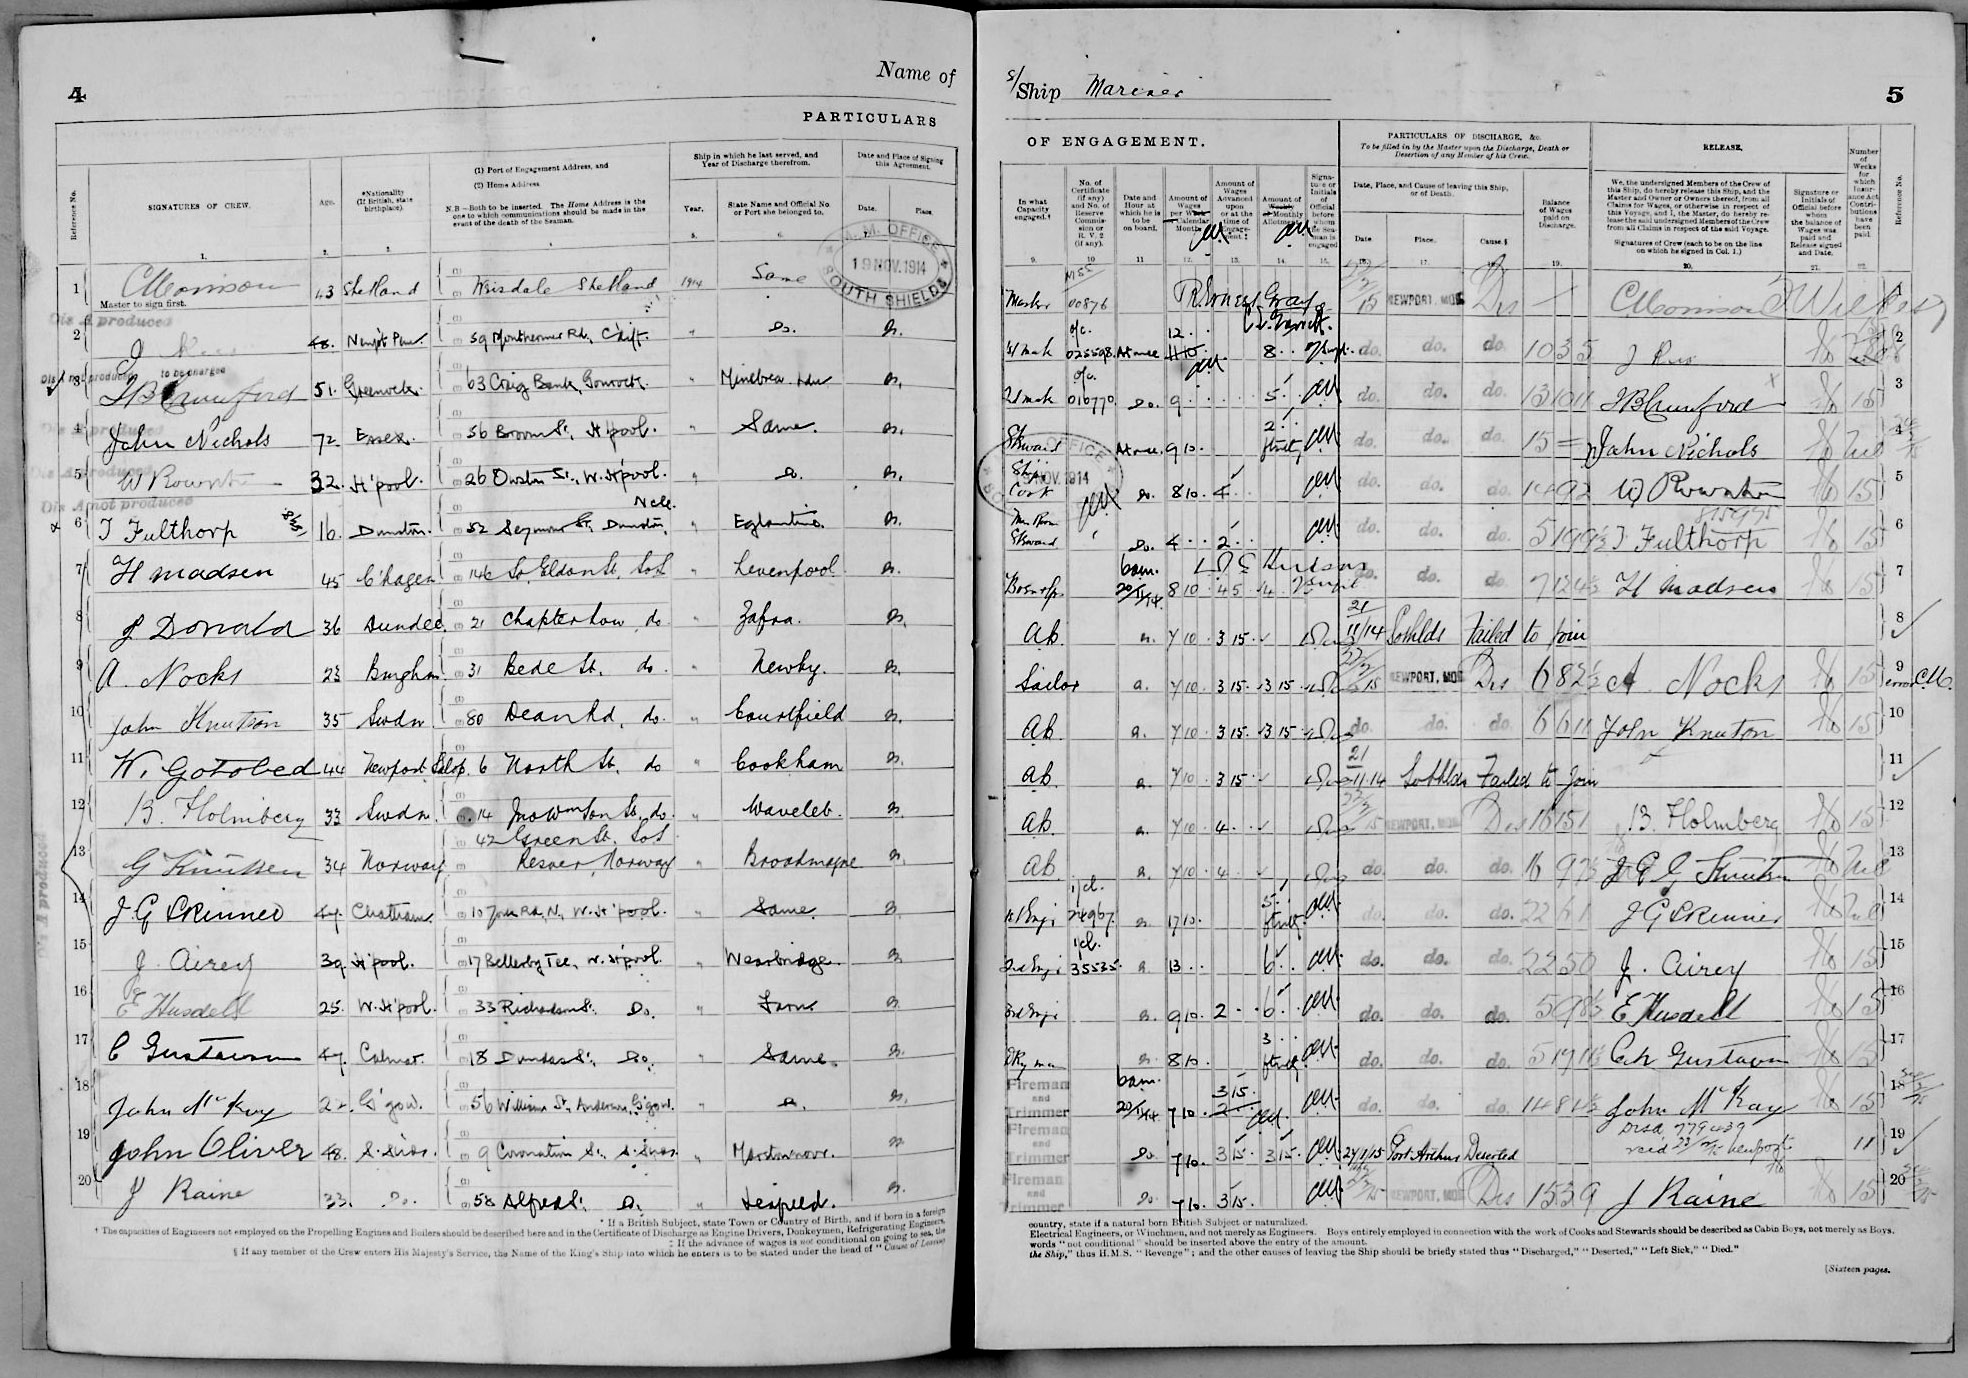 4
Name of
PARTICULARS
Reference No.
SIGNATURES OF CREW.
Age.
*Nationality (If British, state birthplace).
(1) Port of Engagement Address, and
(2) Home Address.
N.B.—Both to be inserted. The Home Address is the one to which communications should be made in the event of the death of the Seaman.
Ship in which he last served, and Year of Discharge therefrom.
Year.
State Name and Official No. or Port she belonged to.
Date and Place of Signing this Agreement.
Date.
Place.
M. M. OFFICE
19 NOV. 1914
SOUTH SHIELDS
1 C Morrison 43 Shetland Weisdale Shetland 1914 Same
Master to sign first.
Dis A produced
2 48. Newpt Pem. 59 Monthermer Rd, C'diff. " Do.
Dis A not produced to be charged
3 51. Greenock. 63 Craig Bank, Gourock. "
4 John Nichols 72 Essex. 56 Broom St, H'pool. " Same.
Dis A produced
5 32. H'pool. 26 Owston St., W. H'pool. " Do.
Dis A not produced
6 T Fulthorp 16. Dunston. 52 Seymour St, Dunston, Ncle. " Eglantine.
7 H Madsen 45 C'hagen 146 So. Eldon St, So S " Levenpool
8 J Donald 36 Dundee. 21 Chapter Row do " Zafra.
9 A. Nocks 23 Bingham 31 Bede St. do. " Newby.
10 John Knutson 35 Swdn 80 Dean Rd, do. " Courtfield
11 W. Gotobed 44 Newport Salop. 6 North St. do " Cookham
12 B. Holmberg 33 Swdn 14 Jno Wmson St. do. " Wavelet.
42 Green St. So S
13 G Knutsen 34 Norway Norway " Broadmayne
14 J G Skinner 47. Chatham. 10 York Rd, N., W. H'pool. " Same.
15 J. Airey 39. H'pool. 17 Bellerby Tce, W. H'pool. " Wearbridge.
16 E Husdell 25. W. H'pool. 33 Richardson St. Do. "
17 C Gustavson 47. Calmar. 18 Dundas St. Do. " Same.
18 John McKay 22. G'gow. 56 William St, Anderson, G'gow. " Do.
19 John Oliver 48. S. Snds. 9 Coronation St. S. Snds. " Marstonmoor.
20 J Raine 33. Do. 58 Alfred St. Do. "
* If a British Subject, state Town or Country of Birth, and if born in a foreign
† The capacities of Engineers not employed on the Propelling Engines and Boilers should be described here and in the Certificate of Discharge as Engine Drivers, Donkeymen, Refrigerating Engineers,
‡ If the advance of wages is not conditional on going to sea, the
§ If any member of the Crew enters His Majesty's Service, the Name of the King's Ship into which he enters is to be stated under the head of "Cause of Leaving
S/Ship Mariner
5
OF ENGAGEMENT.
In what Capacity engaged.†
No. of Certificate (if any) and No. of Reserve Commission or R. V. 2 (if any).
Date and Hour at which he is to be on board.
Amount of Wages per Week or Calendar Month.
Amount of Wages Advanced upon or at the time of Engagement.‡
Amount of Weekly or Monthly Allotment.
Signature or Initials of Official before whom the Seaman is engaged
PARTICULARS OF DISCHARGE, &c.
To be filled in by the Master upon the Discharge, Death or Desertion of any Member of his Crew.
Date, Place, and Cause of leaving this Ship, or of Death.
Date.
Place.
Cause.§
Balance of Wages paid on Discharge.
RELEASE.
We, the undersigned Members of the Crew of this Ship, do hereby release this Ship, and the Master and Owner or Owners thereof, from all Claims for Wages, or otherwise in respect of this Voyage, and I, the Master, do hereby release the said undersigned Members of the Crew from all Claims in respect of the said Voyage.
Signatures of Crew (each to be on the line on which he signed in Col. 1.)
Signature or Initials of Official before whom the balance of Wages was paid and Release signed and Date.
Number of Weeks for which Insurance Act Contributions have been paid.
Reference No.
Master 00876 NEWPORT, MON. Dis C Morrison 1
1st mate 025598. At once 8 do. do. do. 10 3 5 2
2d mate 016770. Do. 9 5 do. do. do. 13 10 11 15 3
Steward At once. 9 10. 2 do. do. do. 15 John Nichols Nil 4
Ship's Cook Do. 8 10. 4 do. do. do. 14 9 2 15 5
Mess Room Steward Do. 4 2 do. do. do. 5 19 9½ T Fulthorp 15 6
815975
Bosun 6am. 20/11/14. 8 10 4 5 do. do. do. 7 12 4½ H Madsen 15 7
AB. 7 10 3 15 21/11/14 So Shlds Failed to join 8
Sailor 7 10 3 15 3 15 NEWPORT, MON. Dis 6 8 2½ A Nocks 15 9
error C.M.
AB. 7 10 3 15 3 15 do. do. do. 6 6 11 John Knutson 15 10
AB. 7 10 3 15 21/11/14 So Shlds Failed to join 11
AB. 7 10 4 NEWPORT, MON. Dis 16 15 1 B. Holmberg 15 12
AB. 7 10 4 do. do. do. 16 9 7½ Nil 13
1st Engr 24967. 17 10. 5 do. do. do. 22 6 1 J G Skinner Nil 14
2nd Engr 35535. 13 6 do. do. do. 22 5 0 J. Airey 15 15
3rd Engr 9 10. 2 6 do. do. do. 5 9 8½ E Husdell 15 16
Dky man 8 10. 3 do. do. do. 5 19 11½ 15 17
Fireman and Trimmer 6am. 20/11/14 7 10. 3 15. do. do. do. 14 8 4½ John McKay 15 18
Fireman and Trimmer Do. 7 10. 3 15 3 15 24/1/15 Port Arthur Deserted Dis A 779437 rec'd Newport 11 19
Fireman and Trimmer Do. 7 10. 3 15. NEWPORT, MON. Dis 15 3 9 J Raine 15 20
country, state if a natural born British Subject or naturalized.
Electrical Engineers, or Winchmen, and not merely as Engineers. Boys entirely employed in connection with the work of Cooks and Stewards should be described as Cabin Boys, not merely as Boys.
words "not conditional" should be inserted above the entry of the amount.
the Ship," thus H.M.S. "Revenge"; and the other causes of leaving the Ship should be briefly stated thus "Discharged," "Deserted," "Left Sick," "Died."
[Sixteen pages.